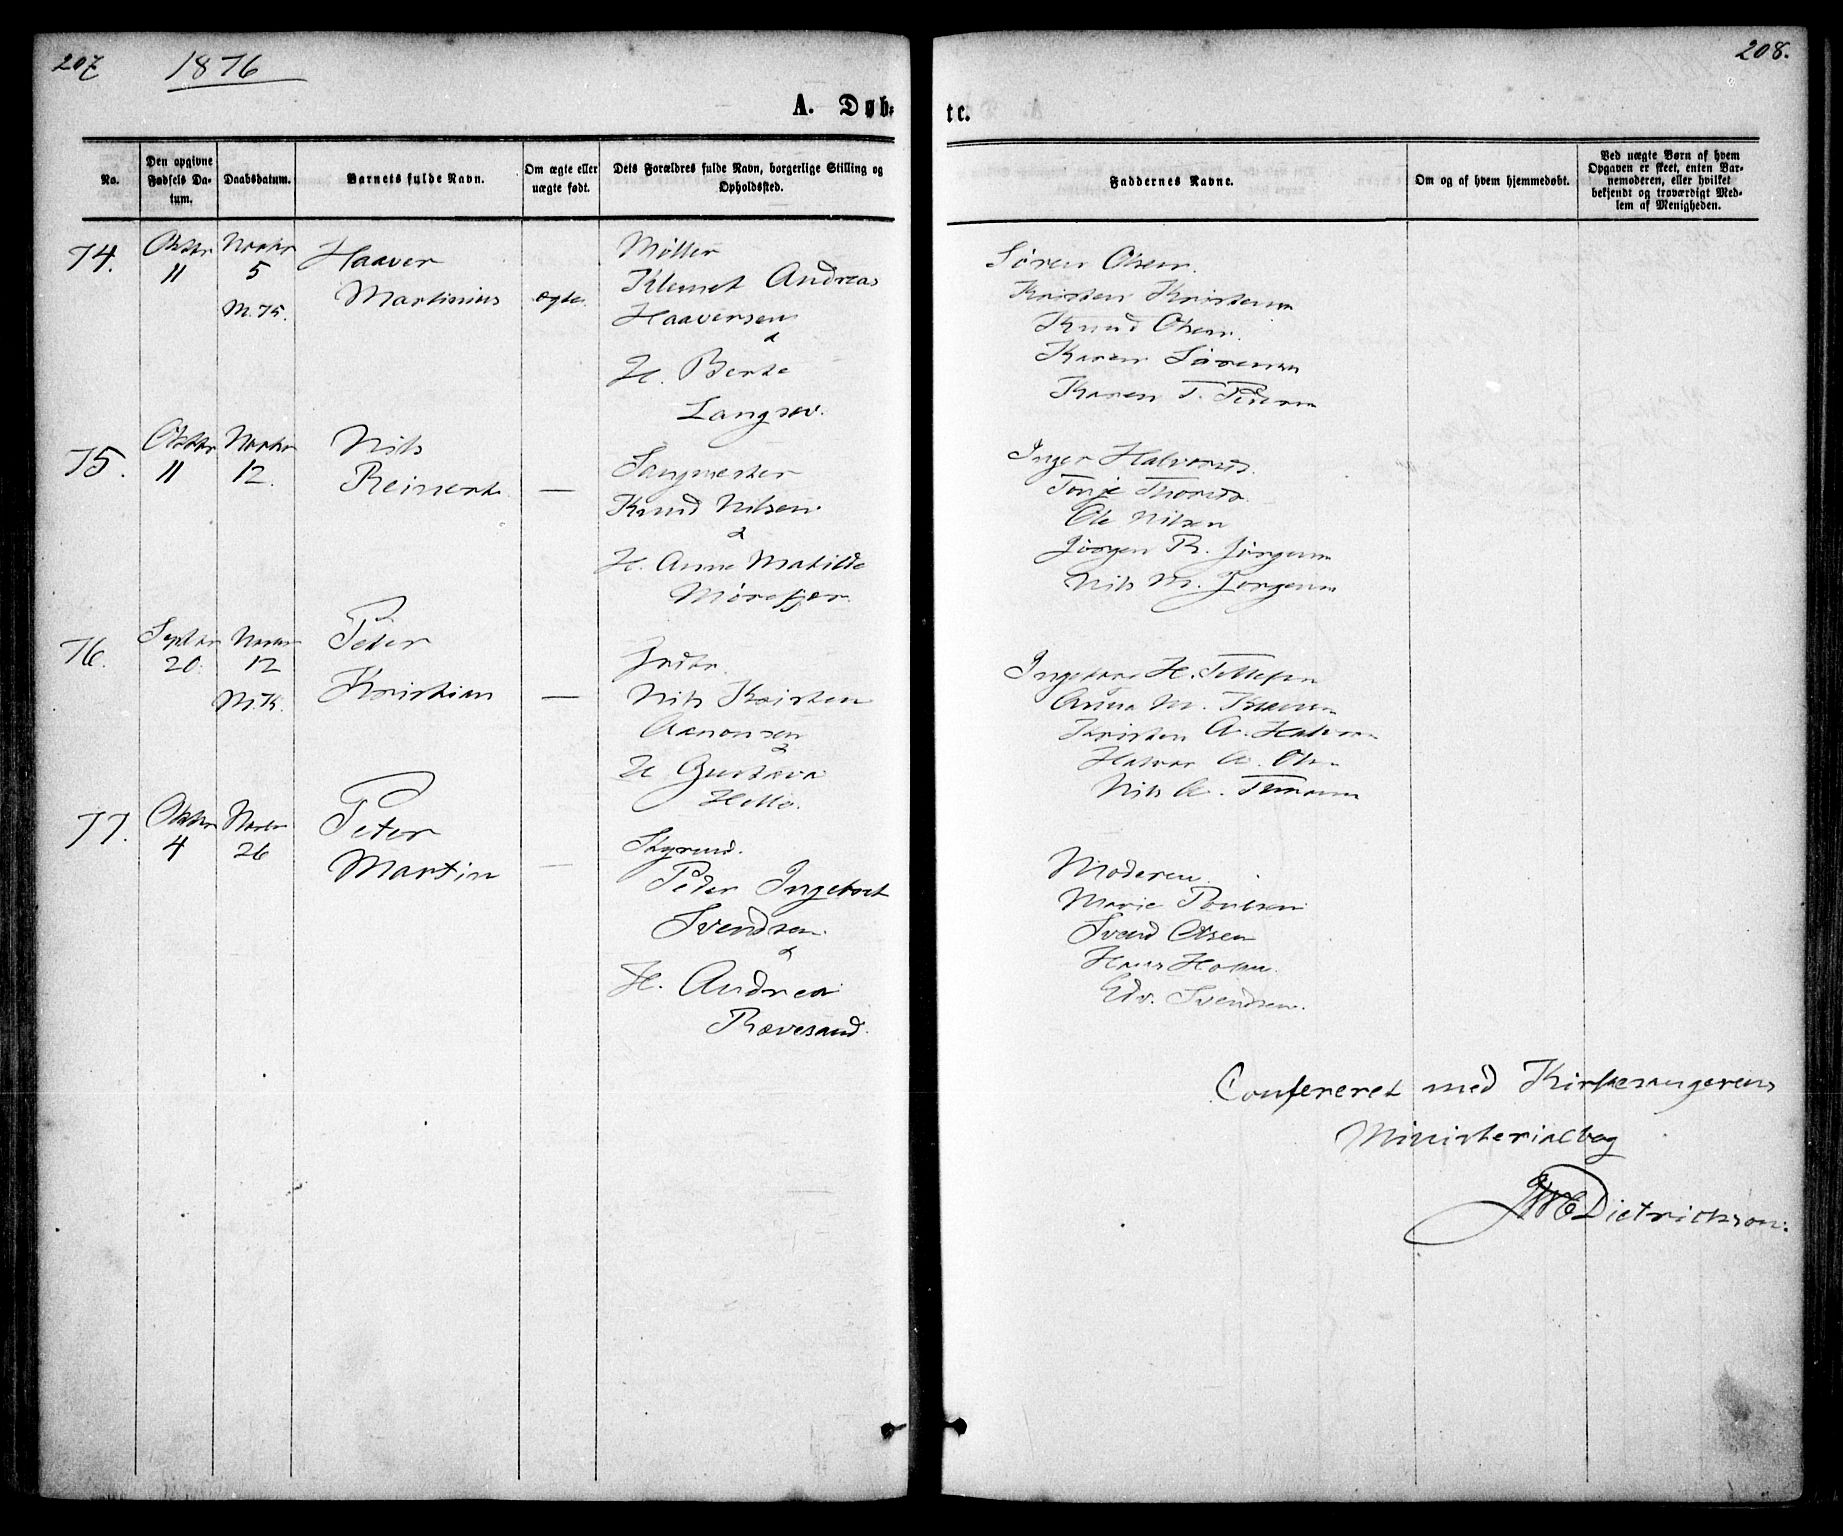 207
1876
A. Døb-
No.
Den opgivne
Fødsels Da-
tum.
Daabsdatum.
Barnets fulde Navn.
Om ægte eller
uægte født.
Dets Forældres fulde Navn, borgerlige Stilling og
Opholdssted.
74.
Oktbr
11
Novbr
5
M.K.
Haaver
Martinius
ægte.
Møller
Klemet Andreas
Haaversen
&
H. Berte
Langsev.
75.
Oktbr
11
Novbr
12.
Nils
Reinert
—
Sangmester
Knud Nilsen
&
H. Anne Matilde
Mørefjær.
76.
Septbr
20.
Novbr
12
M.K.
Peder
Kristian
—
Inder.
Nils Kristen
Aanonsen
&
H. Gustava
Helle.
77.
Oktbr
4
Novbr
26
Peter
Martin
—
Styrmd.
Peder Ingebret
Svendsen
&
H. Andrea
Rævesand.
208.
te.
Faddernes Navne.
Om og af hvem hjemmedøbt.
Ved uægte Børn af hvem
Opgaven er skeet, enten Bar-
nemoderen, eller hvilket
bekjendt og troværdigt Med-
lem af Menigheden.
Søren Olsen.
Kristen Kristensen
Knud Olsen.
Karen Sørensen
Karen T. Pedersen
Inger Halvorsd.
Tonje Thorsd.
Ole Nilsen
Jørgen Th. Jørgensen
Nils M. Jørgensen
Ingeborg H. Tellefsen
Anna M.
Kristen A. Halvorsen
Halvor A. Olsen
Nils A.
Moderen.
Marie Poulsen
Svend Olsen
Hans Holm.
Edv. Svendsen.
Confereret med Kirkesangerens
Ministerialbog
Dietrichson.